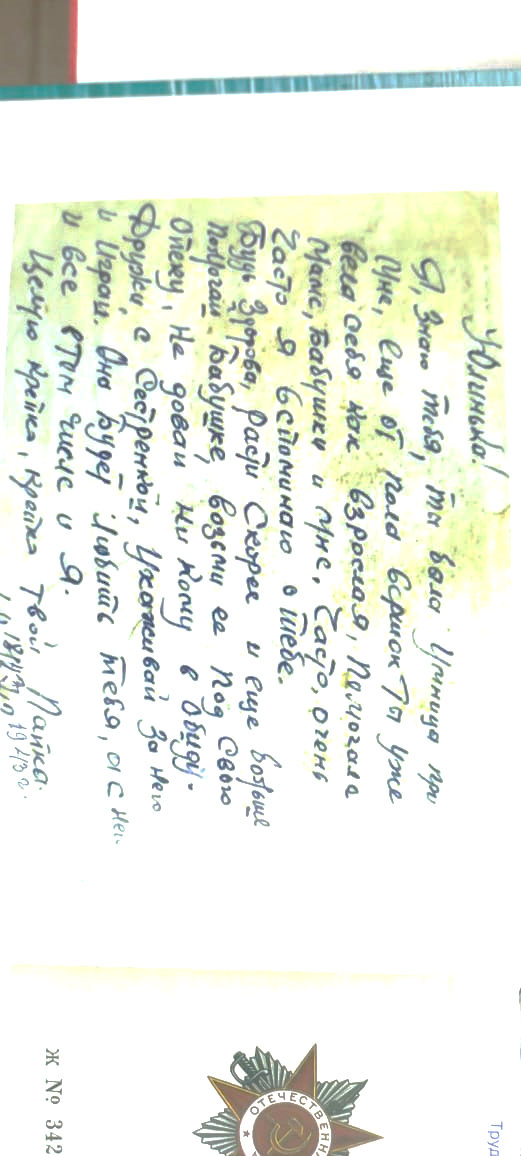 Юлинька!
Я, Знаю тебя, ты была Умница при
мне, еще от пола вершок Ты уже
вела себя как взрослая, Помогала
маме, бабушки и мне, Часто, очень
Часто я вспоминаю о тебе.
Будь Здорова, расти Скорее и еще больше
помогай бабушке, возьми ее под свою
опеку, не довай ни кому в обиду.
Дружи с Сестренкой, ухаживай за нею
и играй. Она будет любить тебя, а с ней
и все втом числе и Я.
Целую крепко, крепко твой Папка.
1943 г.
ОТЕЧЕСТВЕНН
Ж № 342
Труд